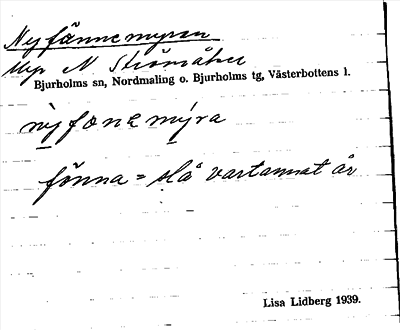 Nyfännemyran
Myr N. Strömåker
Bjurholms sn, Nordmaling o. Bjurholms tg, Västerbottens l.
nyfønemyra
fönna = slå vartannat år
Lisa Lidberg 1939.